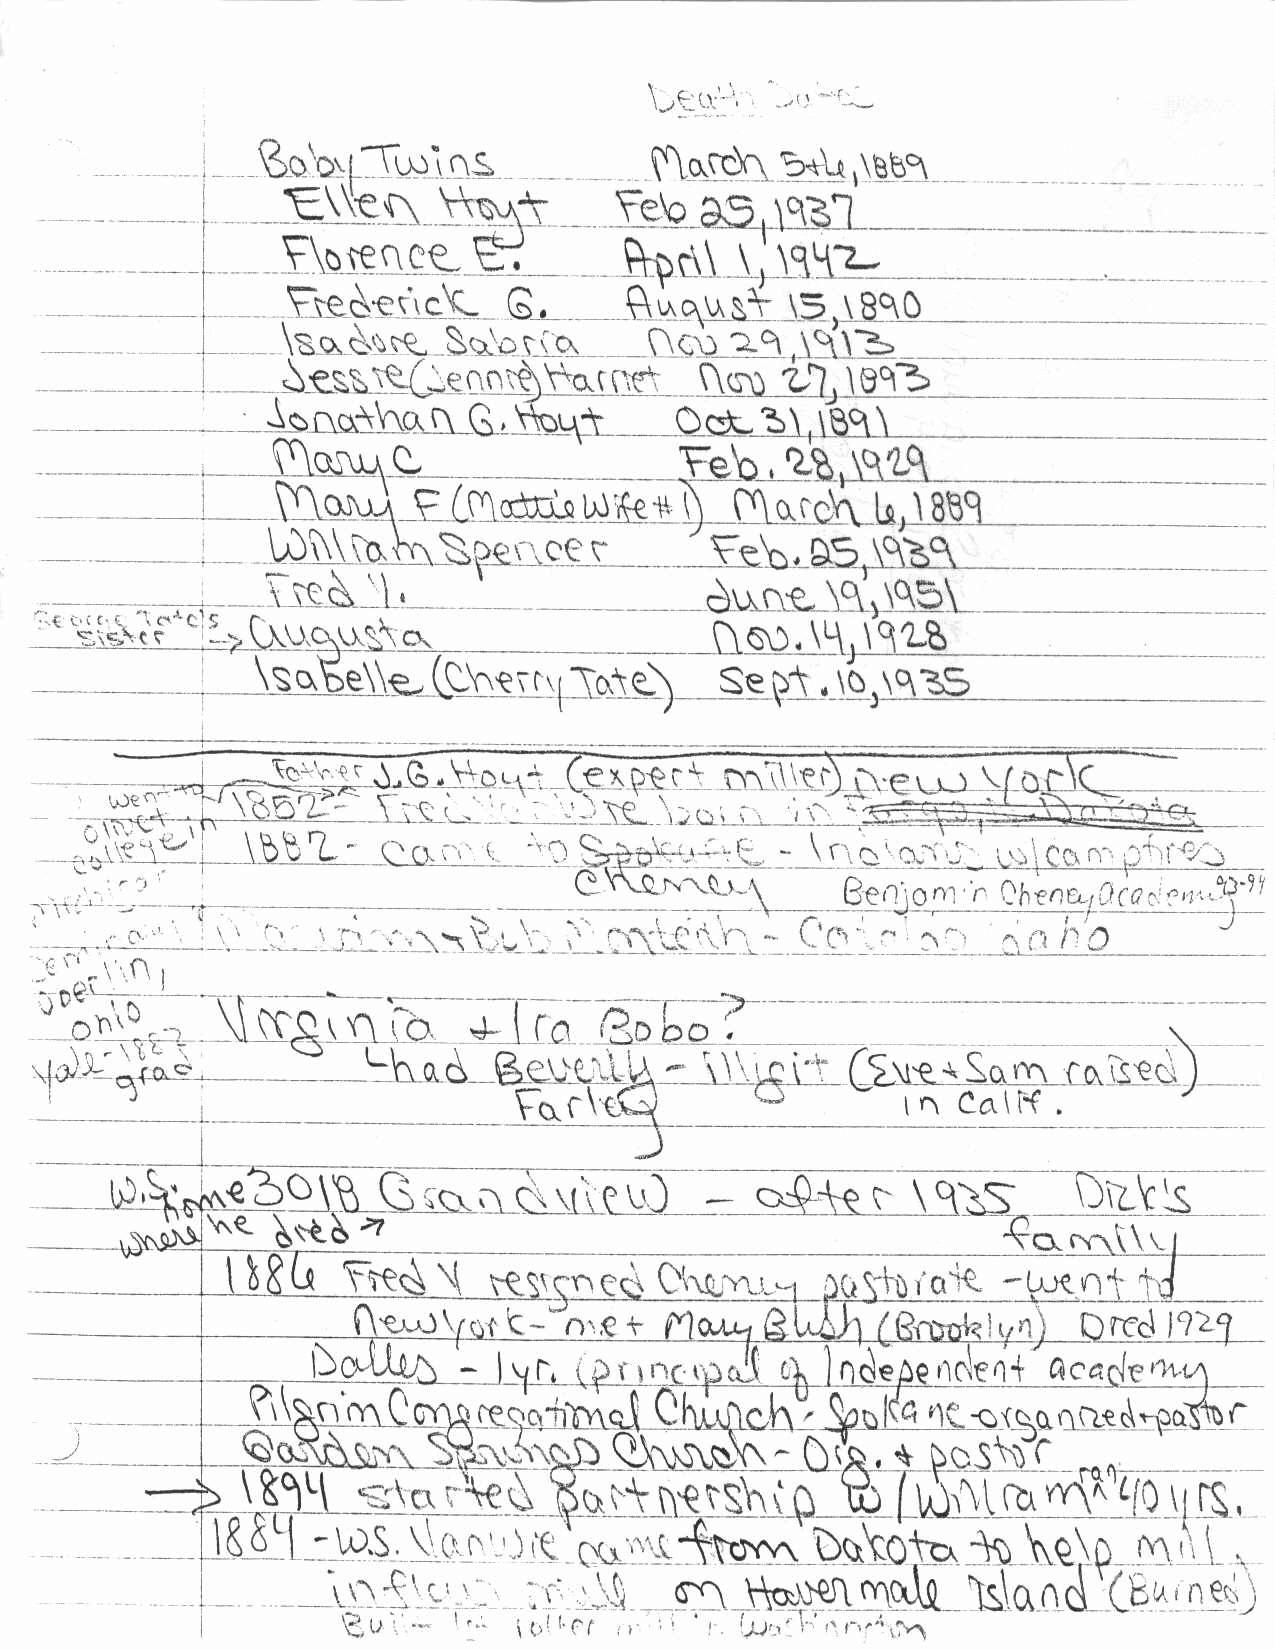 Death Dates
Baby Twins March 5+6, 1889
Ellen Hoyt Feb 25, 1937
Florence E. April 1, 1942
Frederick G. August 15, 1890
Isadore Sabria Nov 29, 1913
Jessie (Jennie) Harriet Nov 27, 1893
Jonathan G. Hoyt Oct 31, 1891
Mary C Feb. 28, 1929
Mary F (Mattie Wife #1) March 6, 1889
William Spencer Feb. 25, 1939
Fred V. June 19, 1951
George Tate's
Sister → Augusta Nov. 14, 1928
Isabelle (Cherry Tate) Sept. 10, 1935
Father J.G. Hoyt (expert miller) New York
went to 1852 - Fred born in Dakota
Olivet college in
1882 - came to Spokane - Indians w/campfires
Cheney Benjamin Cheney Academy 93-94
+ Bub Monteith - Cataldo Idaho
Oberlin,
Ohio
Yale-1882
grad
Virginia + Ira Bobo?
had Beverly - illigit (Eve + Sam raised)
Farley in Calif.
W.S. home 3018 Grandview - after 1935 Dick's
where he died → family
1886 Fred V resigned Cheney pastorate - went to
New York - met Mary Bush (Brooklyn) Died 1929
Dalles - 1 yr. (principal of Independent academy
Pilgrim Congregational Church - Spokane - organized + pastor
Garden Springs Church - Org. + pastor
→ 1894 started partnership w/William ran 40 yrs.
1884 - W.S. VanWie came from Dakota to help mill
in flour mill on Havermale Island (Burned)
Built 1st roller mill in Washington